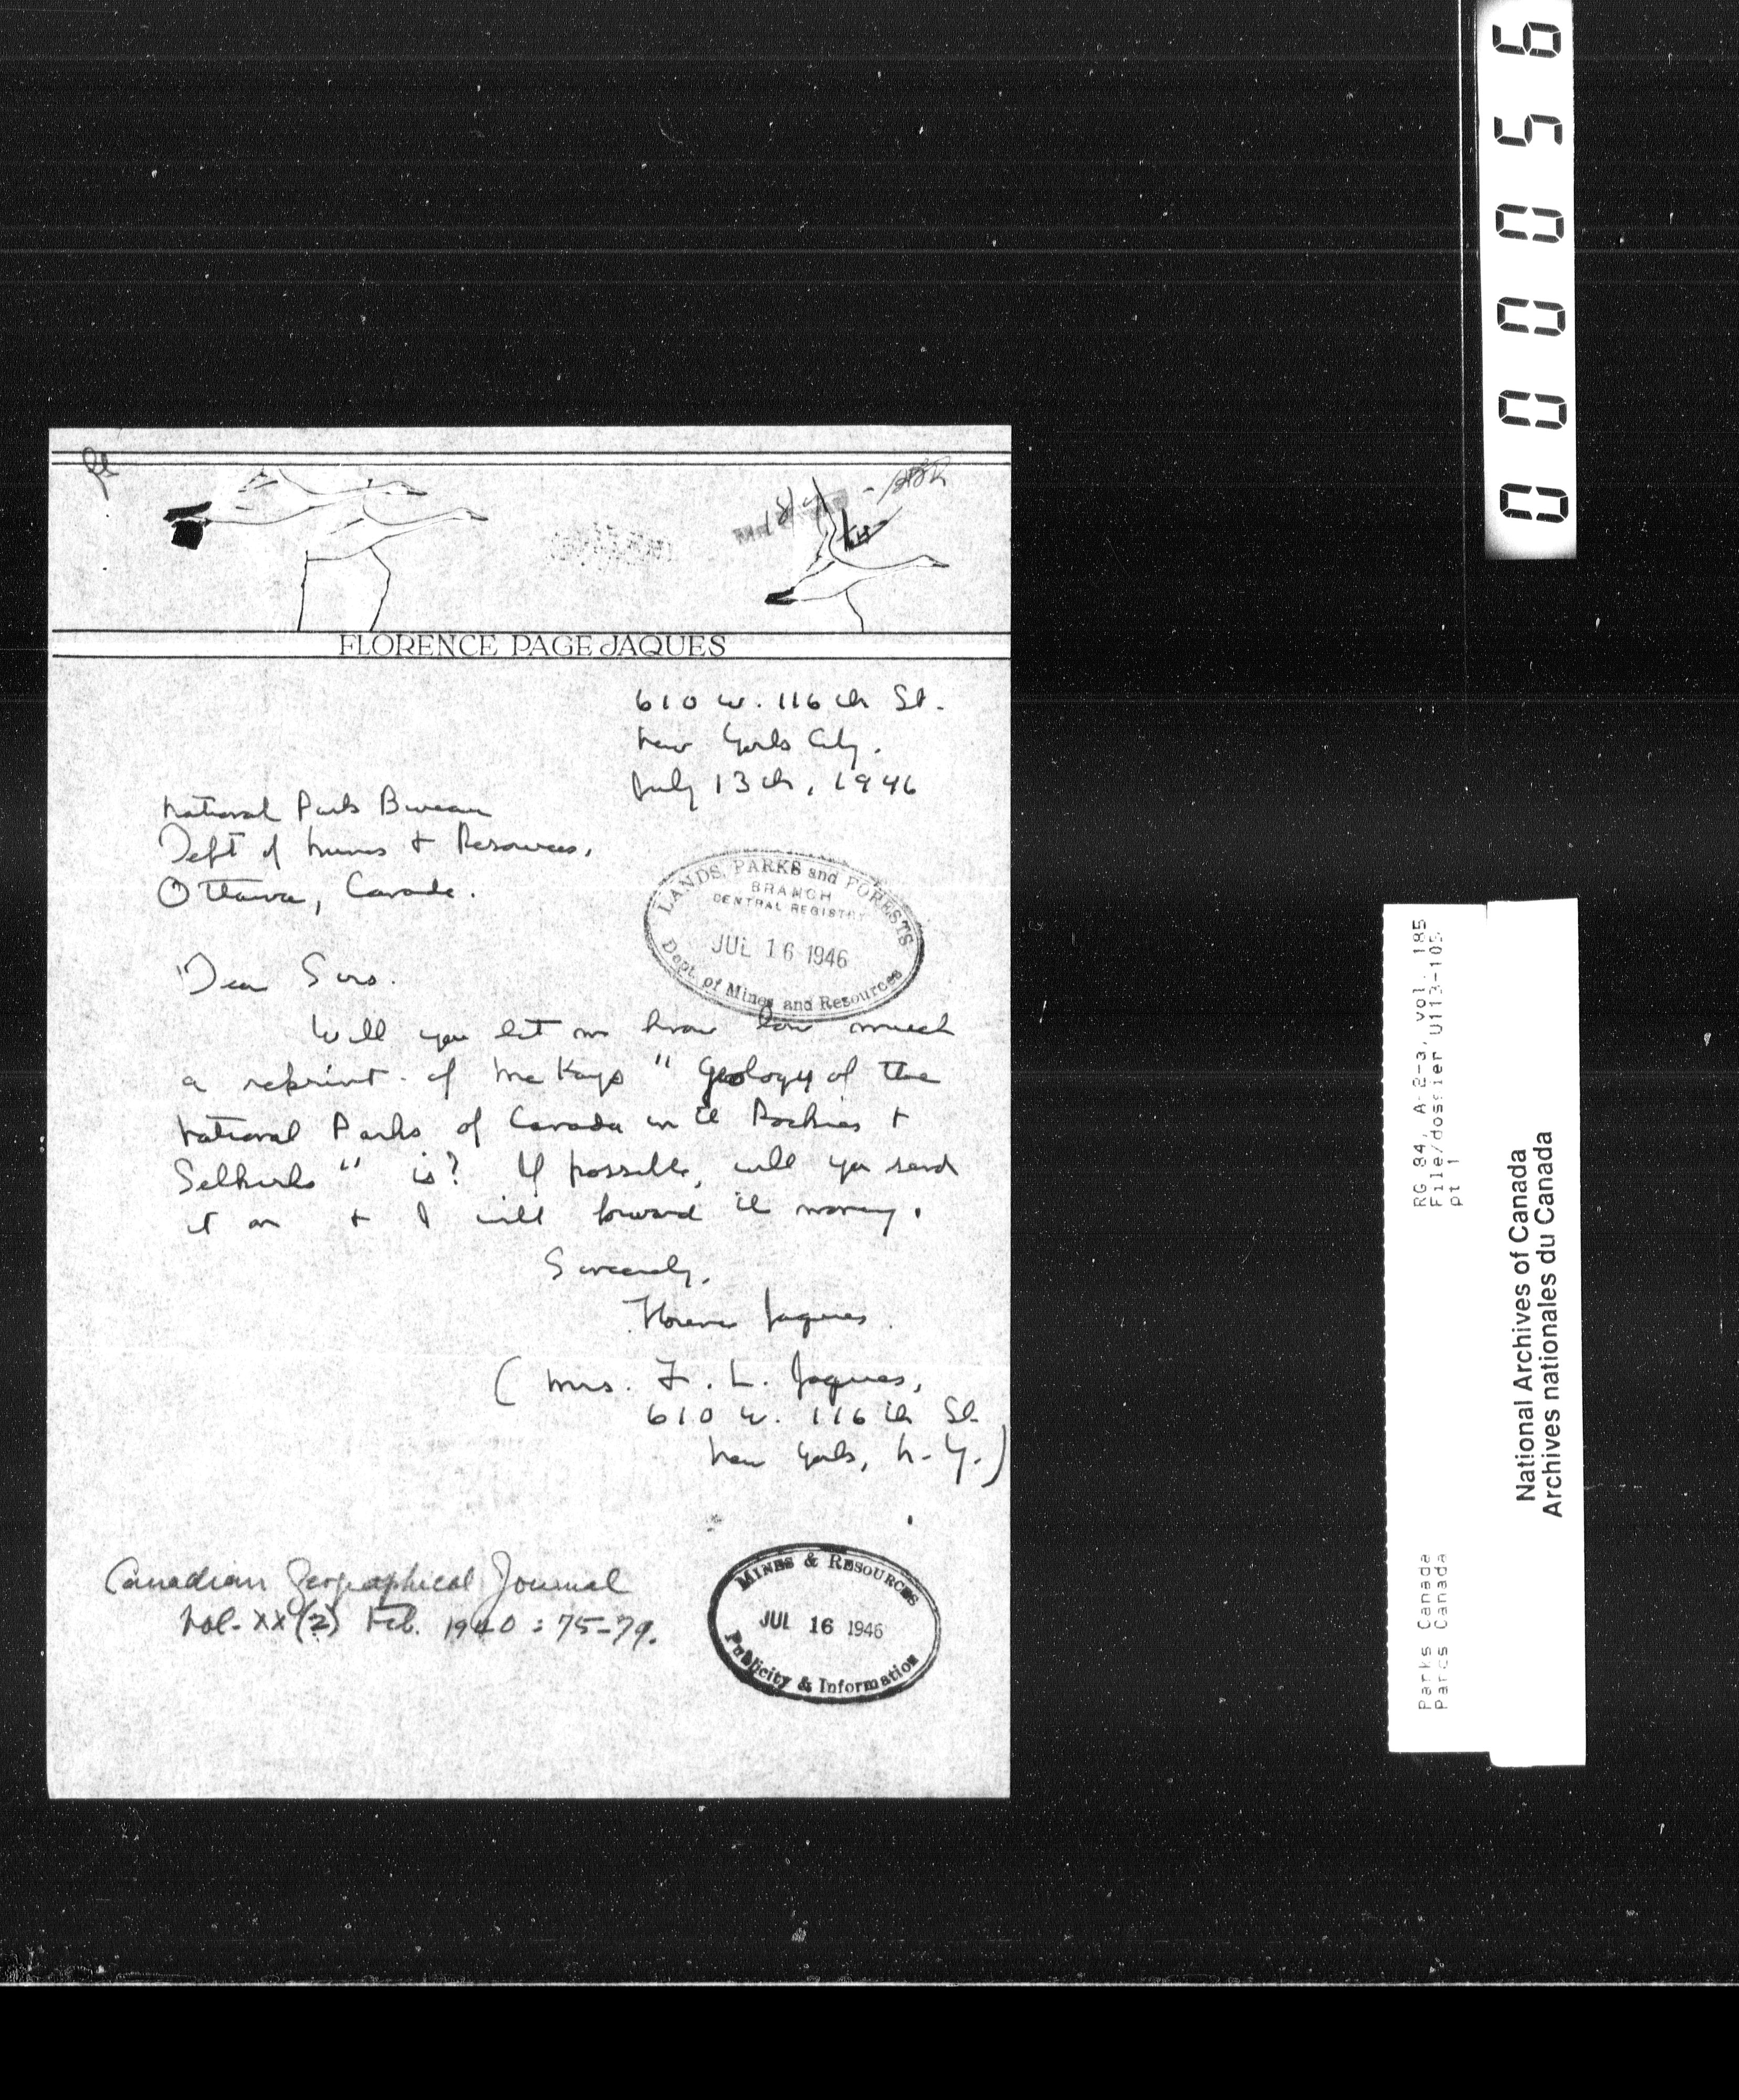 FLORENCE PAGE JAQUES
610 W. 116th St.
New York City.
July 13th, 1946
National Parks Bureau
Dept of Mines & Resources,
Ottawa, Canada.
LANDS, PARKS and FORESTS
BRANCH
CENTRAL REGISTRY
JUL 16 1946
Dept. of Mines and Resources
Dear Sirs.
Will you let me know how much
a reprint of McKay's "Geology of the
National Parks of Canada in the Rockies &
Selkirks" is? If possible, will you send
it on & I will forward the money.
Sincerely,
Florence Jaques.
(Mrs. F. L. Jaques,
610 W. 116th St.
New York, N.Y.)
Canadian Geographical Journal
Vol. XX (2) Feb. 1940: 75-79.
MINES & RESOURCES
JUL 16 1946
Publicity & Information
000056
RG 84, A-2-a, vol. 185
File/dossier U113-105
pt 1
Parks Canada
Parcs Canada
National Archives of Canada
Archives nationales du Canada